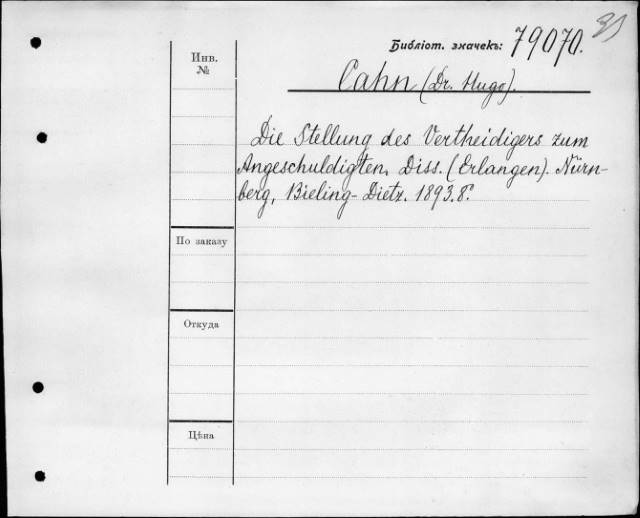 Библіот. значекъ: 79070.
Инв.
№
Cahn (Dr. Hugo).
Die Stellung des Vertheidigers zum
Angeschuldigten. Diss. (Erlangen). Nürn-
berg, Bieling-Dietz. 1893. 8º.
По заказу
Откуда
Цѣна